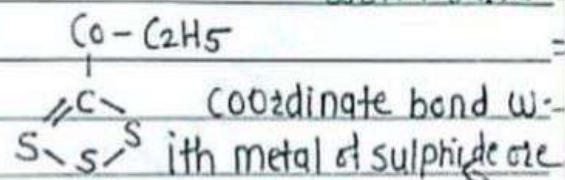 Co - C2H5
C
S S coordinate bond w-
S ith metal of sulphide ore